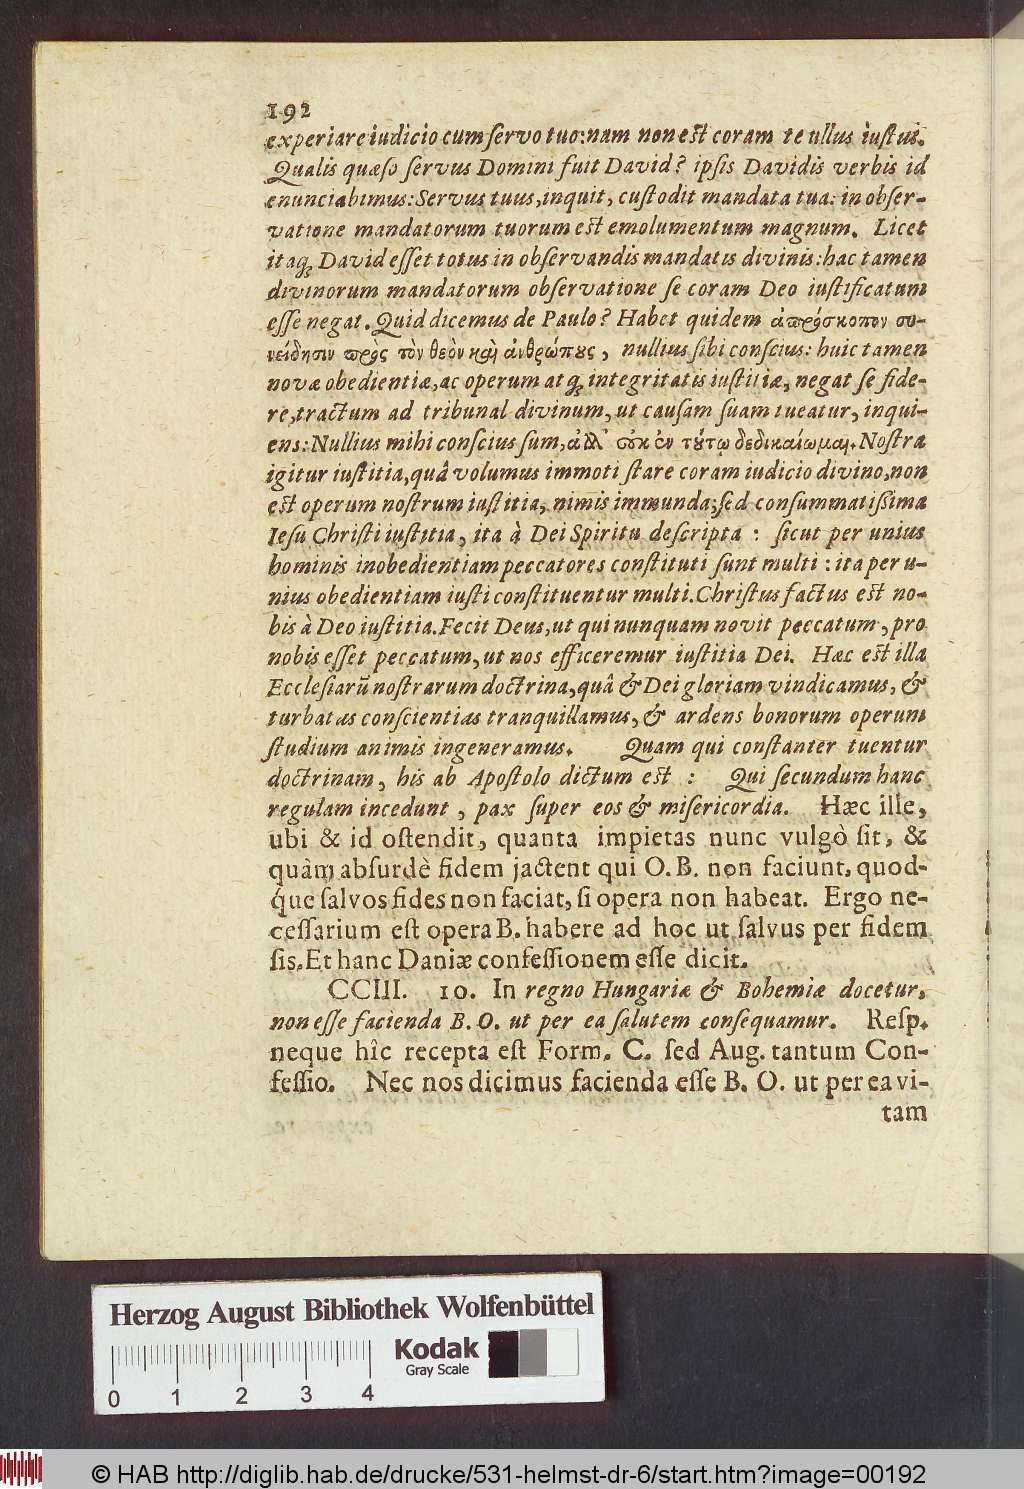 192
experiare iudicio cum servo tuo: nam non est coram te ullus iustus.
Qualis quæso servus Domini fuit David? ipsis Davidis verbis id
enunciabimus: Servus tuus, inquit, custodit mandata tua: in obser-
vatione mandatorum tuorum est emolumentum magnum. Licet
itaq; David esset totus in observandis mandatis divinis: hac tamen
divinorum mandatorum observatione se coram Deo iustificatum
esse negat. Quid dicemus de Paulo? Habet quidem ἀπρόσκοπον συ-
νείδησιν πρὸς τὸν θεὸν καὶ ἀνθρώπους, nullius sibi conscius: huic tamen
novæ obedientiæ, ac operum atq; integritatis iustitiæ, negat se fide-
re, tractum ad tribunal divinum, ut causam suam tueatur, inqui-
ens: Nullius mihi conscius sum, ἀλλ' οὐκ ἐν τούτῳ δεδικαίωμαι. Nostra
igitur iustitia, quâ volumus immoti stare coram iudicio divino, non
est operum nostrum iustitia, nimis immunda; sed consummatissima
Iesu Christi iustitia, ita à Dei Spiritu descripta : sicut per unius
hominis inobedientiam peccatores constituti sunt multi : ita per u-
nius obedientiam iusti constituentur multi. Christus factus est no-
bis à Deo iustitia. Fecit Deus, ut qui nunquam novit peccatum, pro
nobis esset peccatum, ut nos efficeremur iustitia Dei. Hæc est illa
Ecclesiarū nostrarum doctrina, quâ & Dei gloriam vindicamus, &
turbatas conscientias tranquillamus, & ardens bonorum operum
studium animis ingeneramus. Quam qui constanter tuentur
doctrinam, his ab Apostolo dictum est : Qui secundum hanc
regulam incedunt, pax super eos & misericordia. Hæc ille,
ubi & id ostendit, quanta impietas nunc vulgò sit, &
quàm absurdè fidem jactent qui O. B. non faciunt, quod-
q́ue salvos fides non faciat, si opera non habeat. Ergo ne-
cessarium est opera B. habere ad hoc ut salvus per fidem
sis. Et hanc Daniæ confessionem esse dicit.
CCIII. 10. In regno Hungariæ & Bohemiæ docetur,
non esse facienda B. O. ut per ea salutem consequamur. Resp.
neque hîc recepta est Form. C. sed Aug. tantum Con-
fessio. Nec nos dicimus facienda esse B. O. ut per ea vi-
tam
Herzog August Bibliothek Wolfenbüttel
Kodak
Gray Scale
0 1 2 3 4
© HAB http://diglib.hab.de/drucke/531-helmst-dr-6/start.htm?image=00192